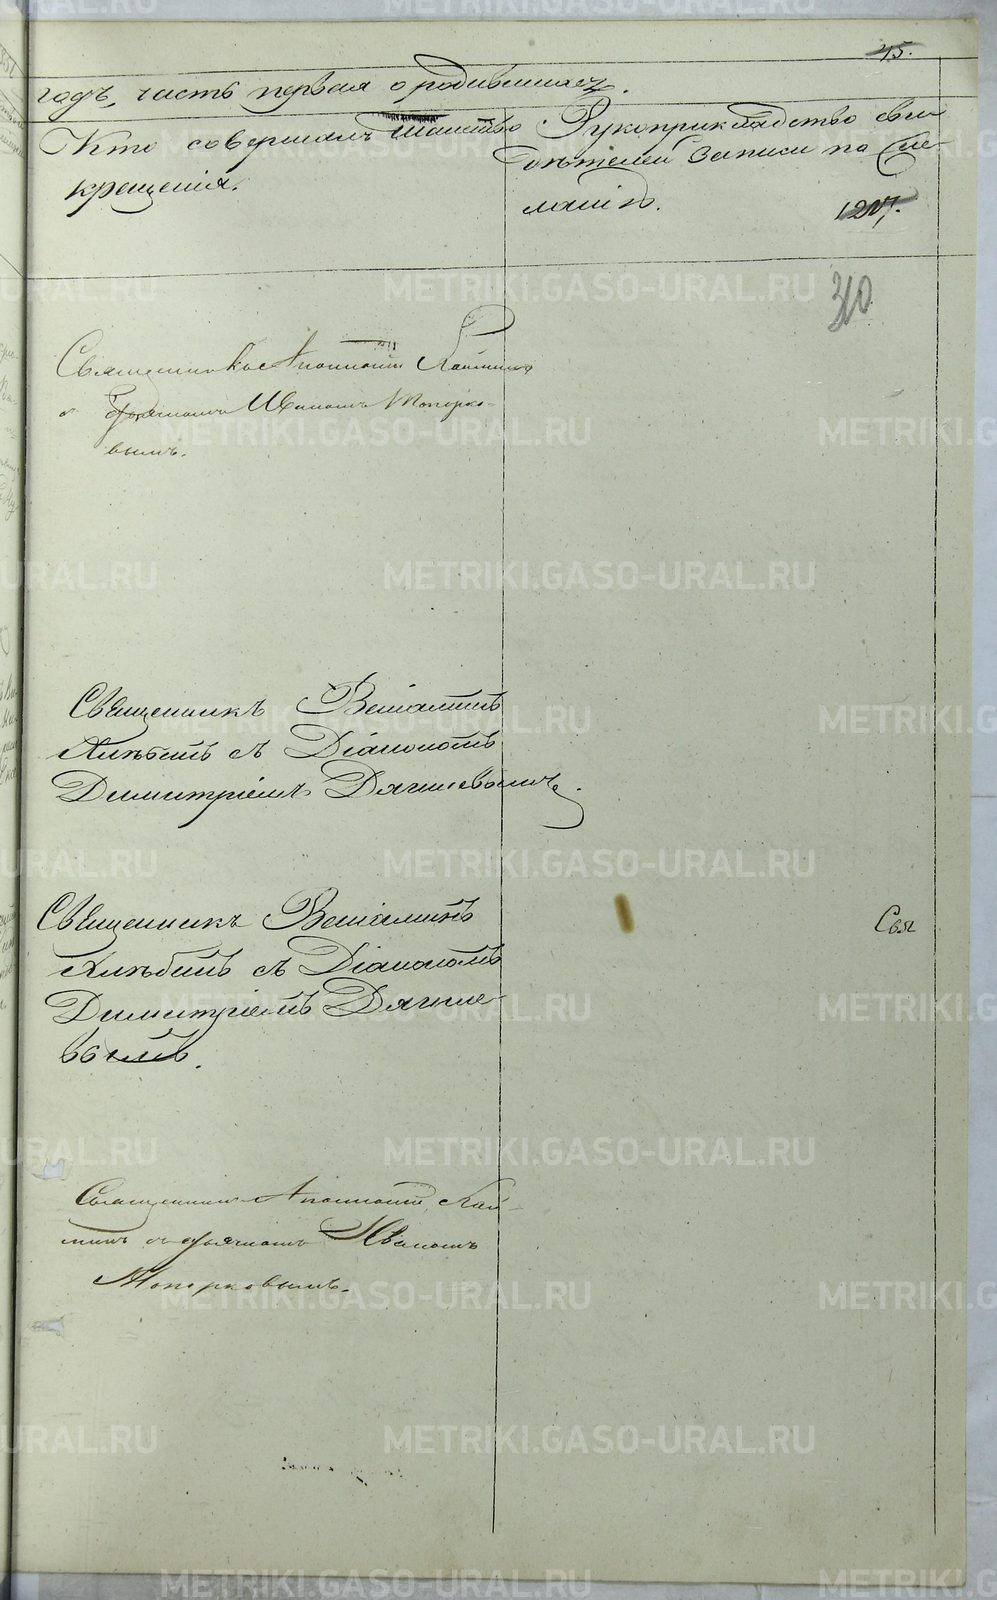 45.
годъ, часть первая о родившихся.
Кто совершалъ таинство
крещенія.
Рукоприкладство сви-
дѣтелей записи по же-
ланію.
1217.
310
Священникъ
с дьячкомъ Иваномъ Топорко-
вымъ.
Священникъ Веніаминъ
Хлѣбинъ съ Діакономъ
Димитріемъ Дягилевымъ.
Священникъ Веніаминъ
Хлѣбинъ съ Діакономъ
Димитріемъ Дягиле-
вымъ.
Свя
Священникъ
съ дьячкомъ Иваномъ
Топорковымъ.
METRIKI.GASO-URAL.RU